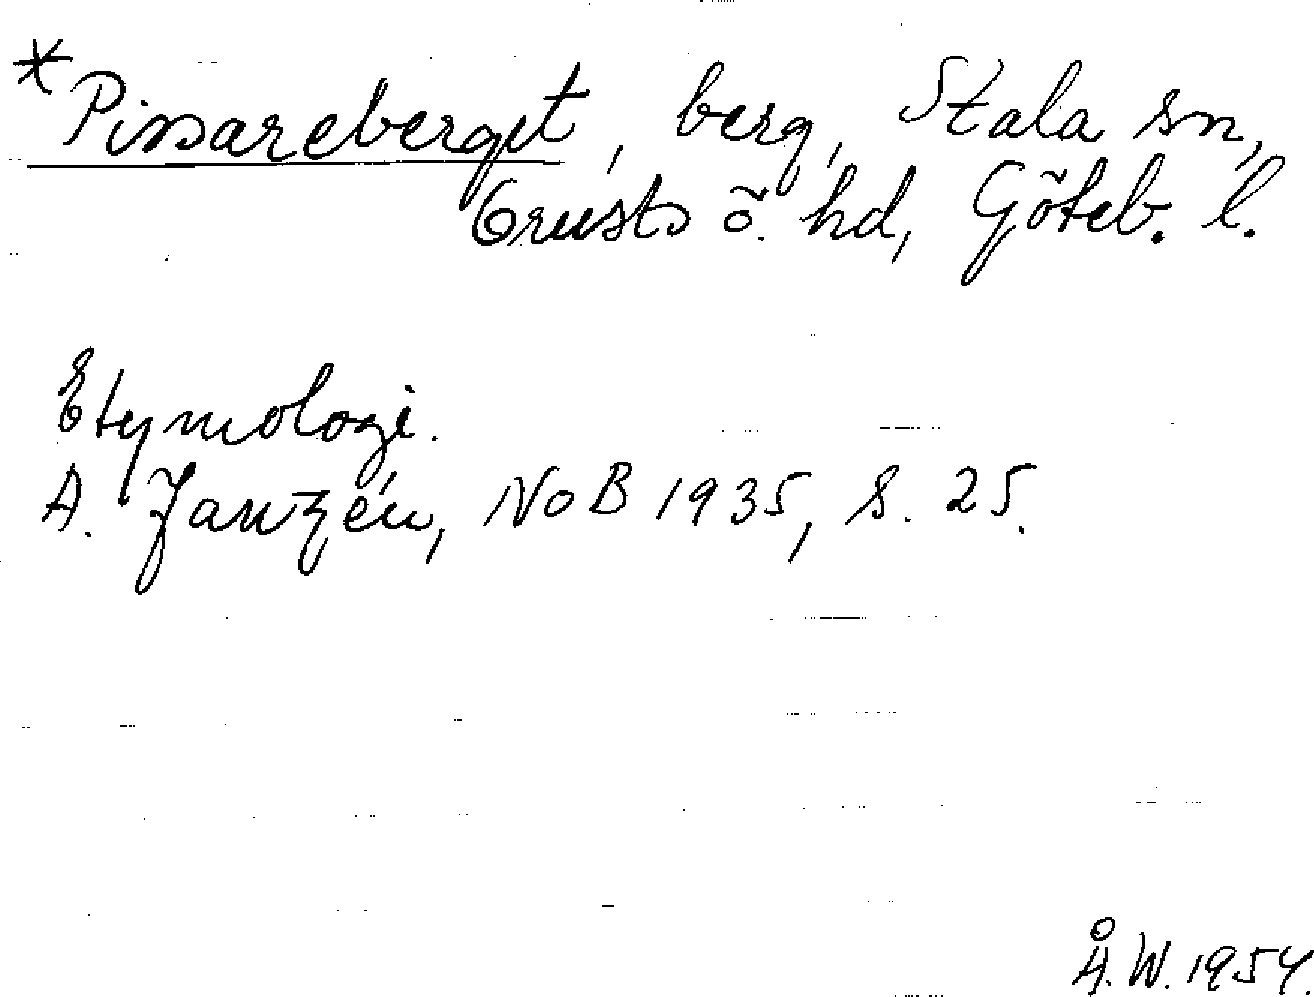 *Pissareberget, berg, Stala sn,
Orusts ö. hd, Göteb. l.
Etymologi.
A. Janzén, NoB 1935, S. 25.
Å.W. 1954.